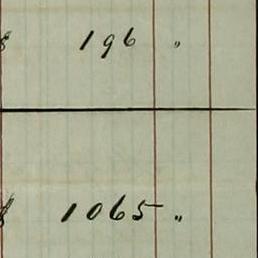 $ 196 "
$ 1065 "